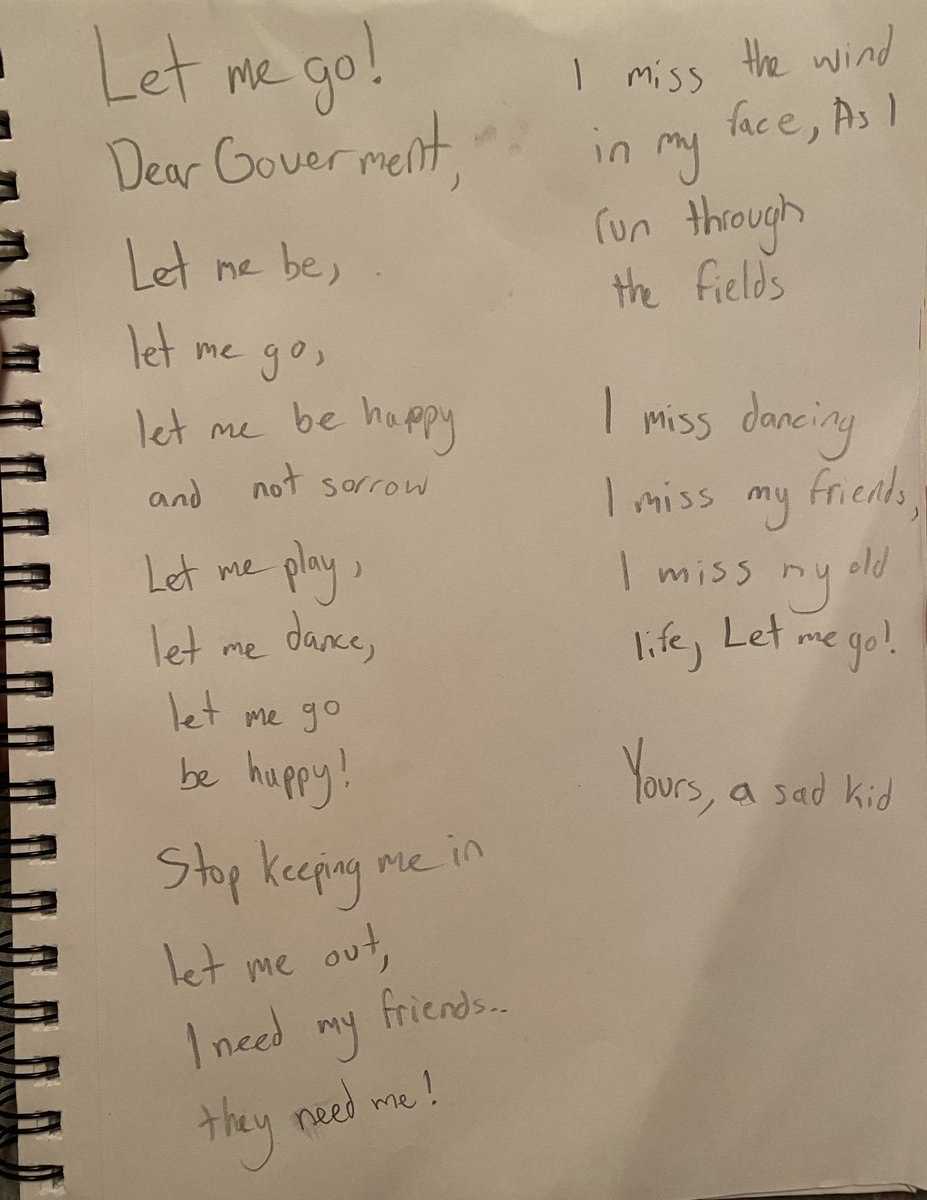 Let me go!
Dear Goverment,
Let me be,
let me go,
let me be happy
and not sorrow
Let me play,
let me dance,
let me go
be happy!
Stop keeping me in
let me out,
I need my friends..
they need me!
I miss the wind
in my face, As I
run through
the fields
I miss dancing
I miss my friends,
I miss my old
life, Let me go!
Yours, a sad kid